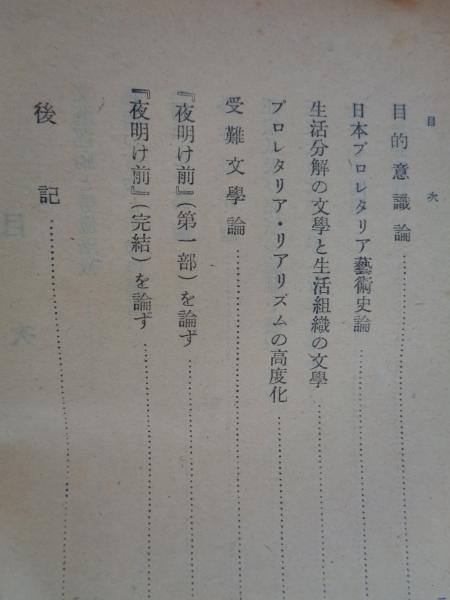 目次
目的意識論
日本プロレタリア藝術史論
生活分解の文學と生活組織の文學
プロレタリア・リアリズムの高度化
受難文學論
『夜明け前』(第一部)を論ず
『夜明け前』(完結)を論ず
後記